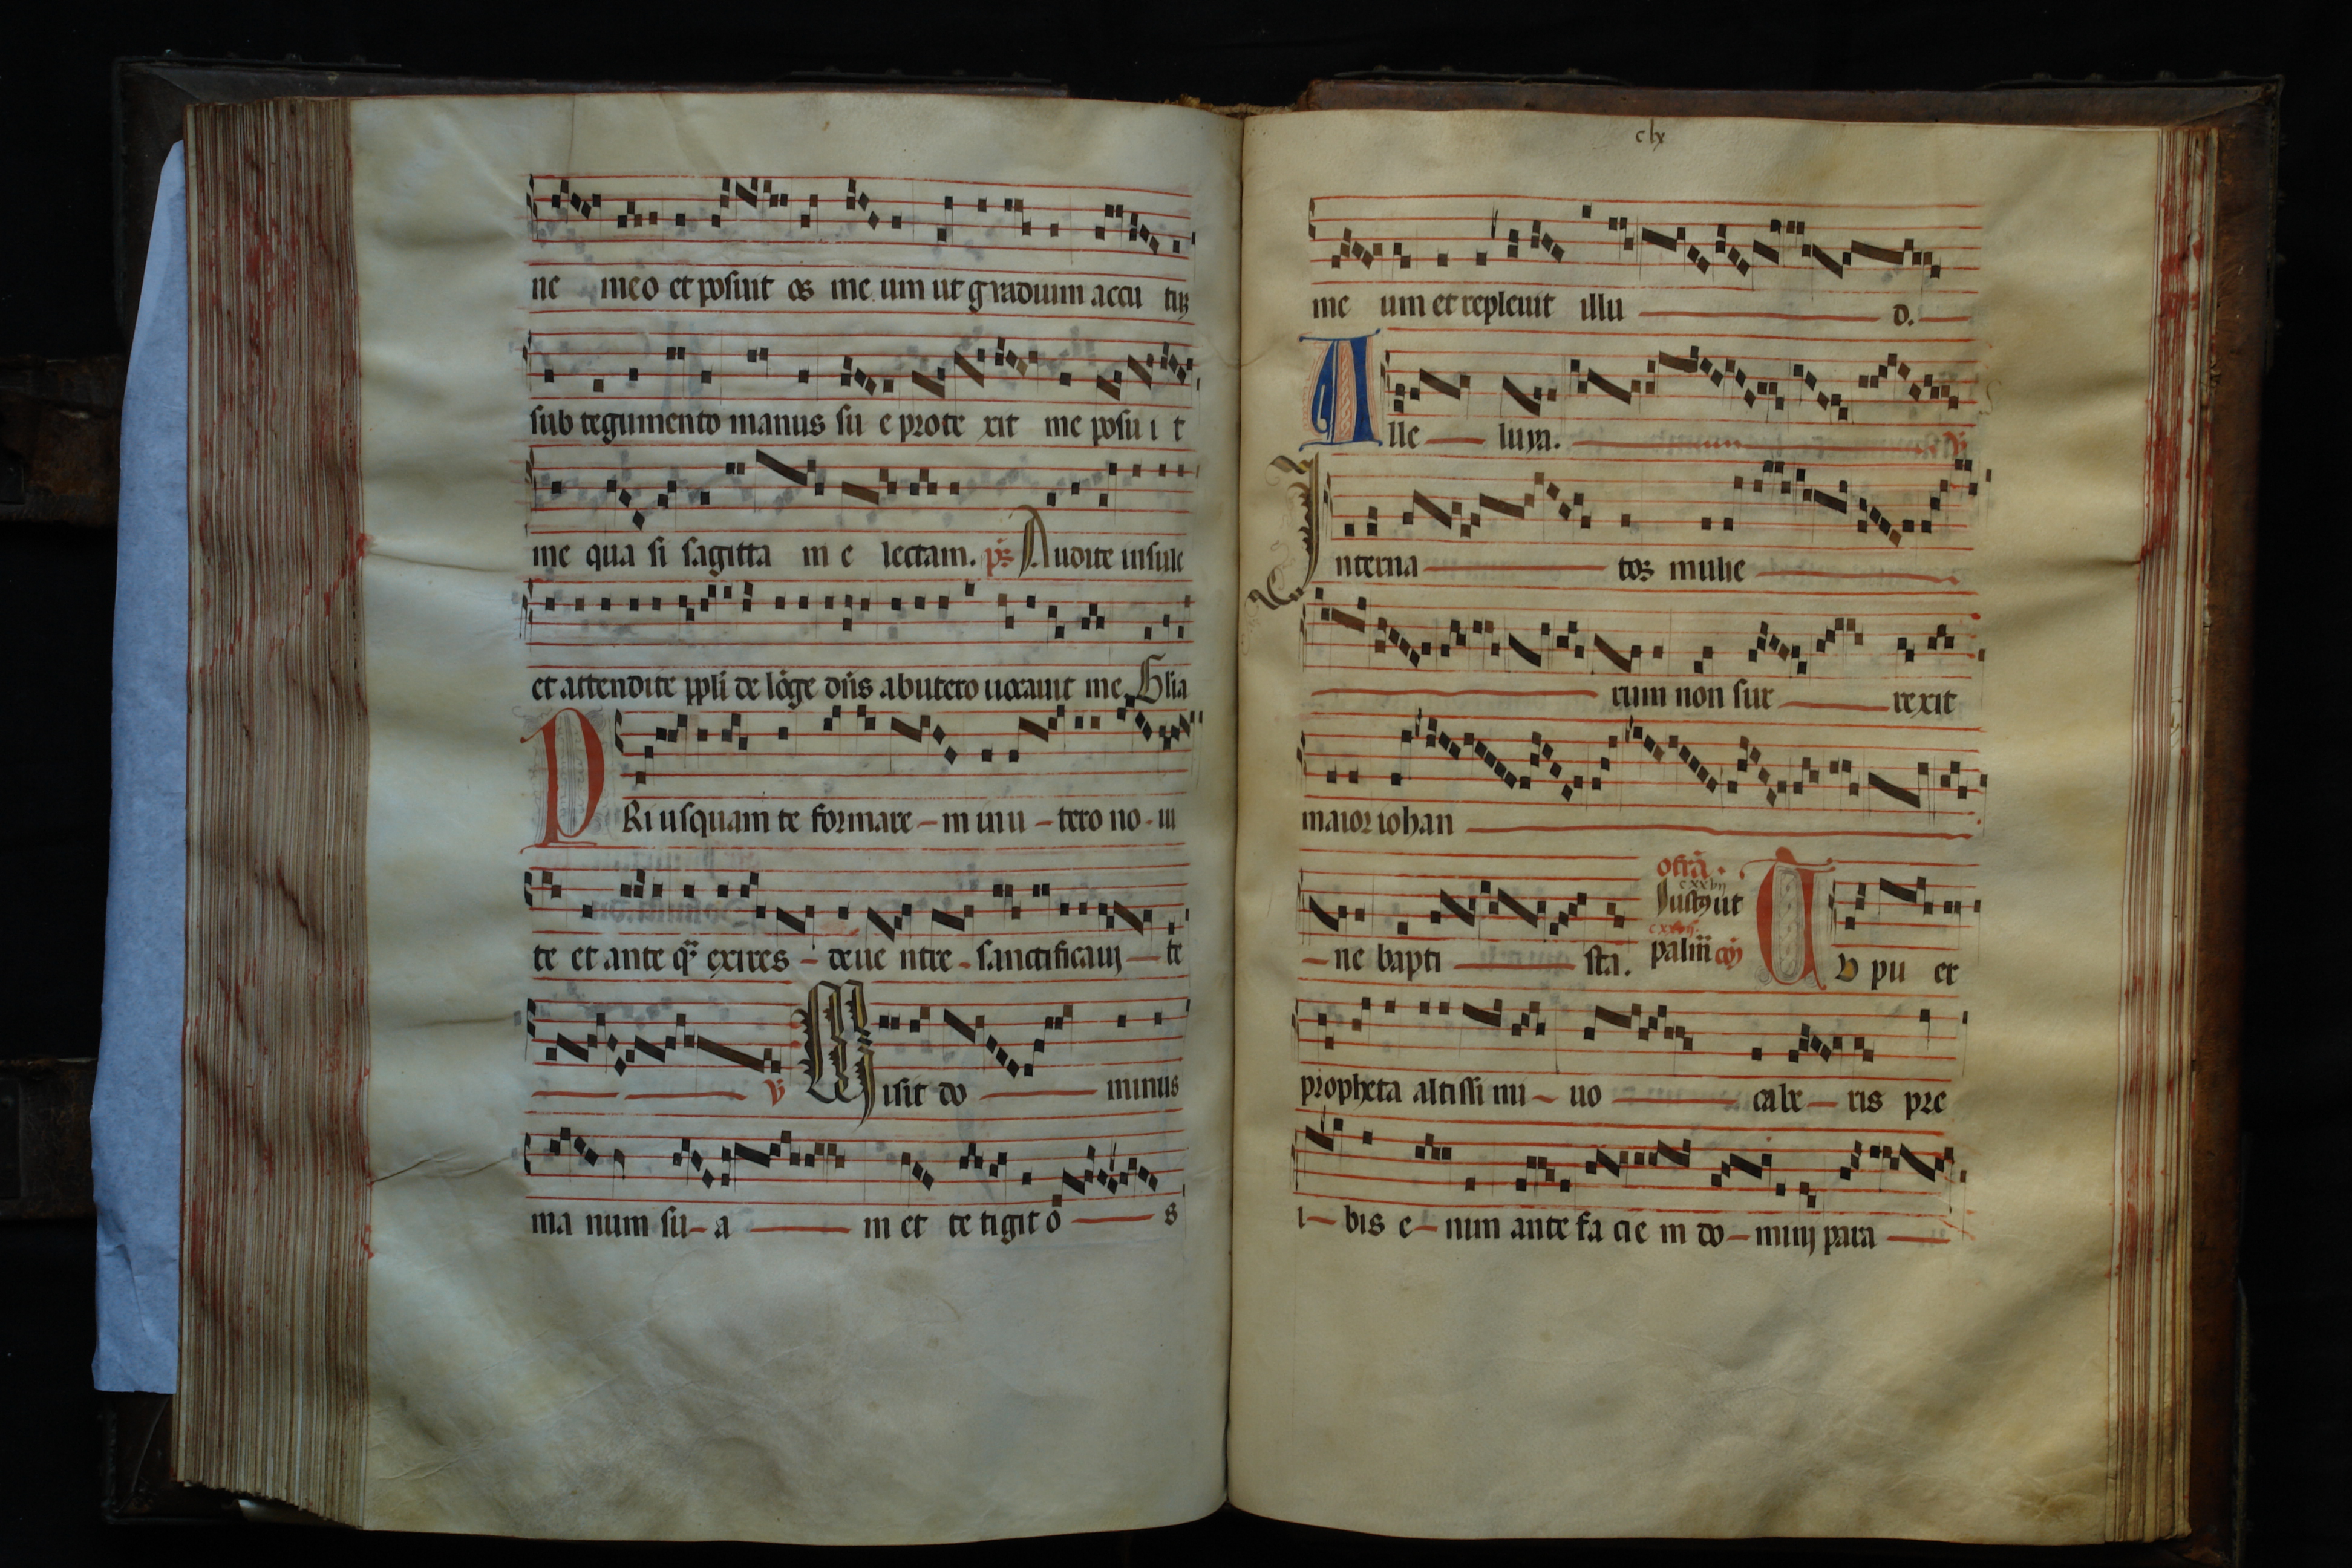 ne meo et posuit os me um ut gladium accu tuꝫ
sub tegumento manus su e prote xit me posu i t
me qua si sagitta m e lectam. p̄s Audite insule
et attendite ppl̄i de lōge dn̄s ab utero uocauit me. Glia
PRi usquam te formare m in u tero no ui
te et ante q̄ exires de ue ntre sanctificauj te
V Misit do minus
ma num su a m et te tigit o s
clx
me um et repleuit illu d.
Alle luya. V
Interna tos mulie
rum non sur rexit
maior iohan
ofr̄a.
cxxvij
Justꝰ ut
ne bapti sta. palm̄ cōj TU pu er
propheta altissi mi uo cabe ris pre
i bis e nim ante fa cie m do minj para